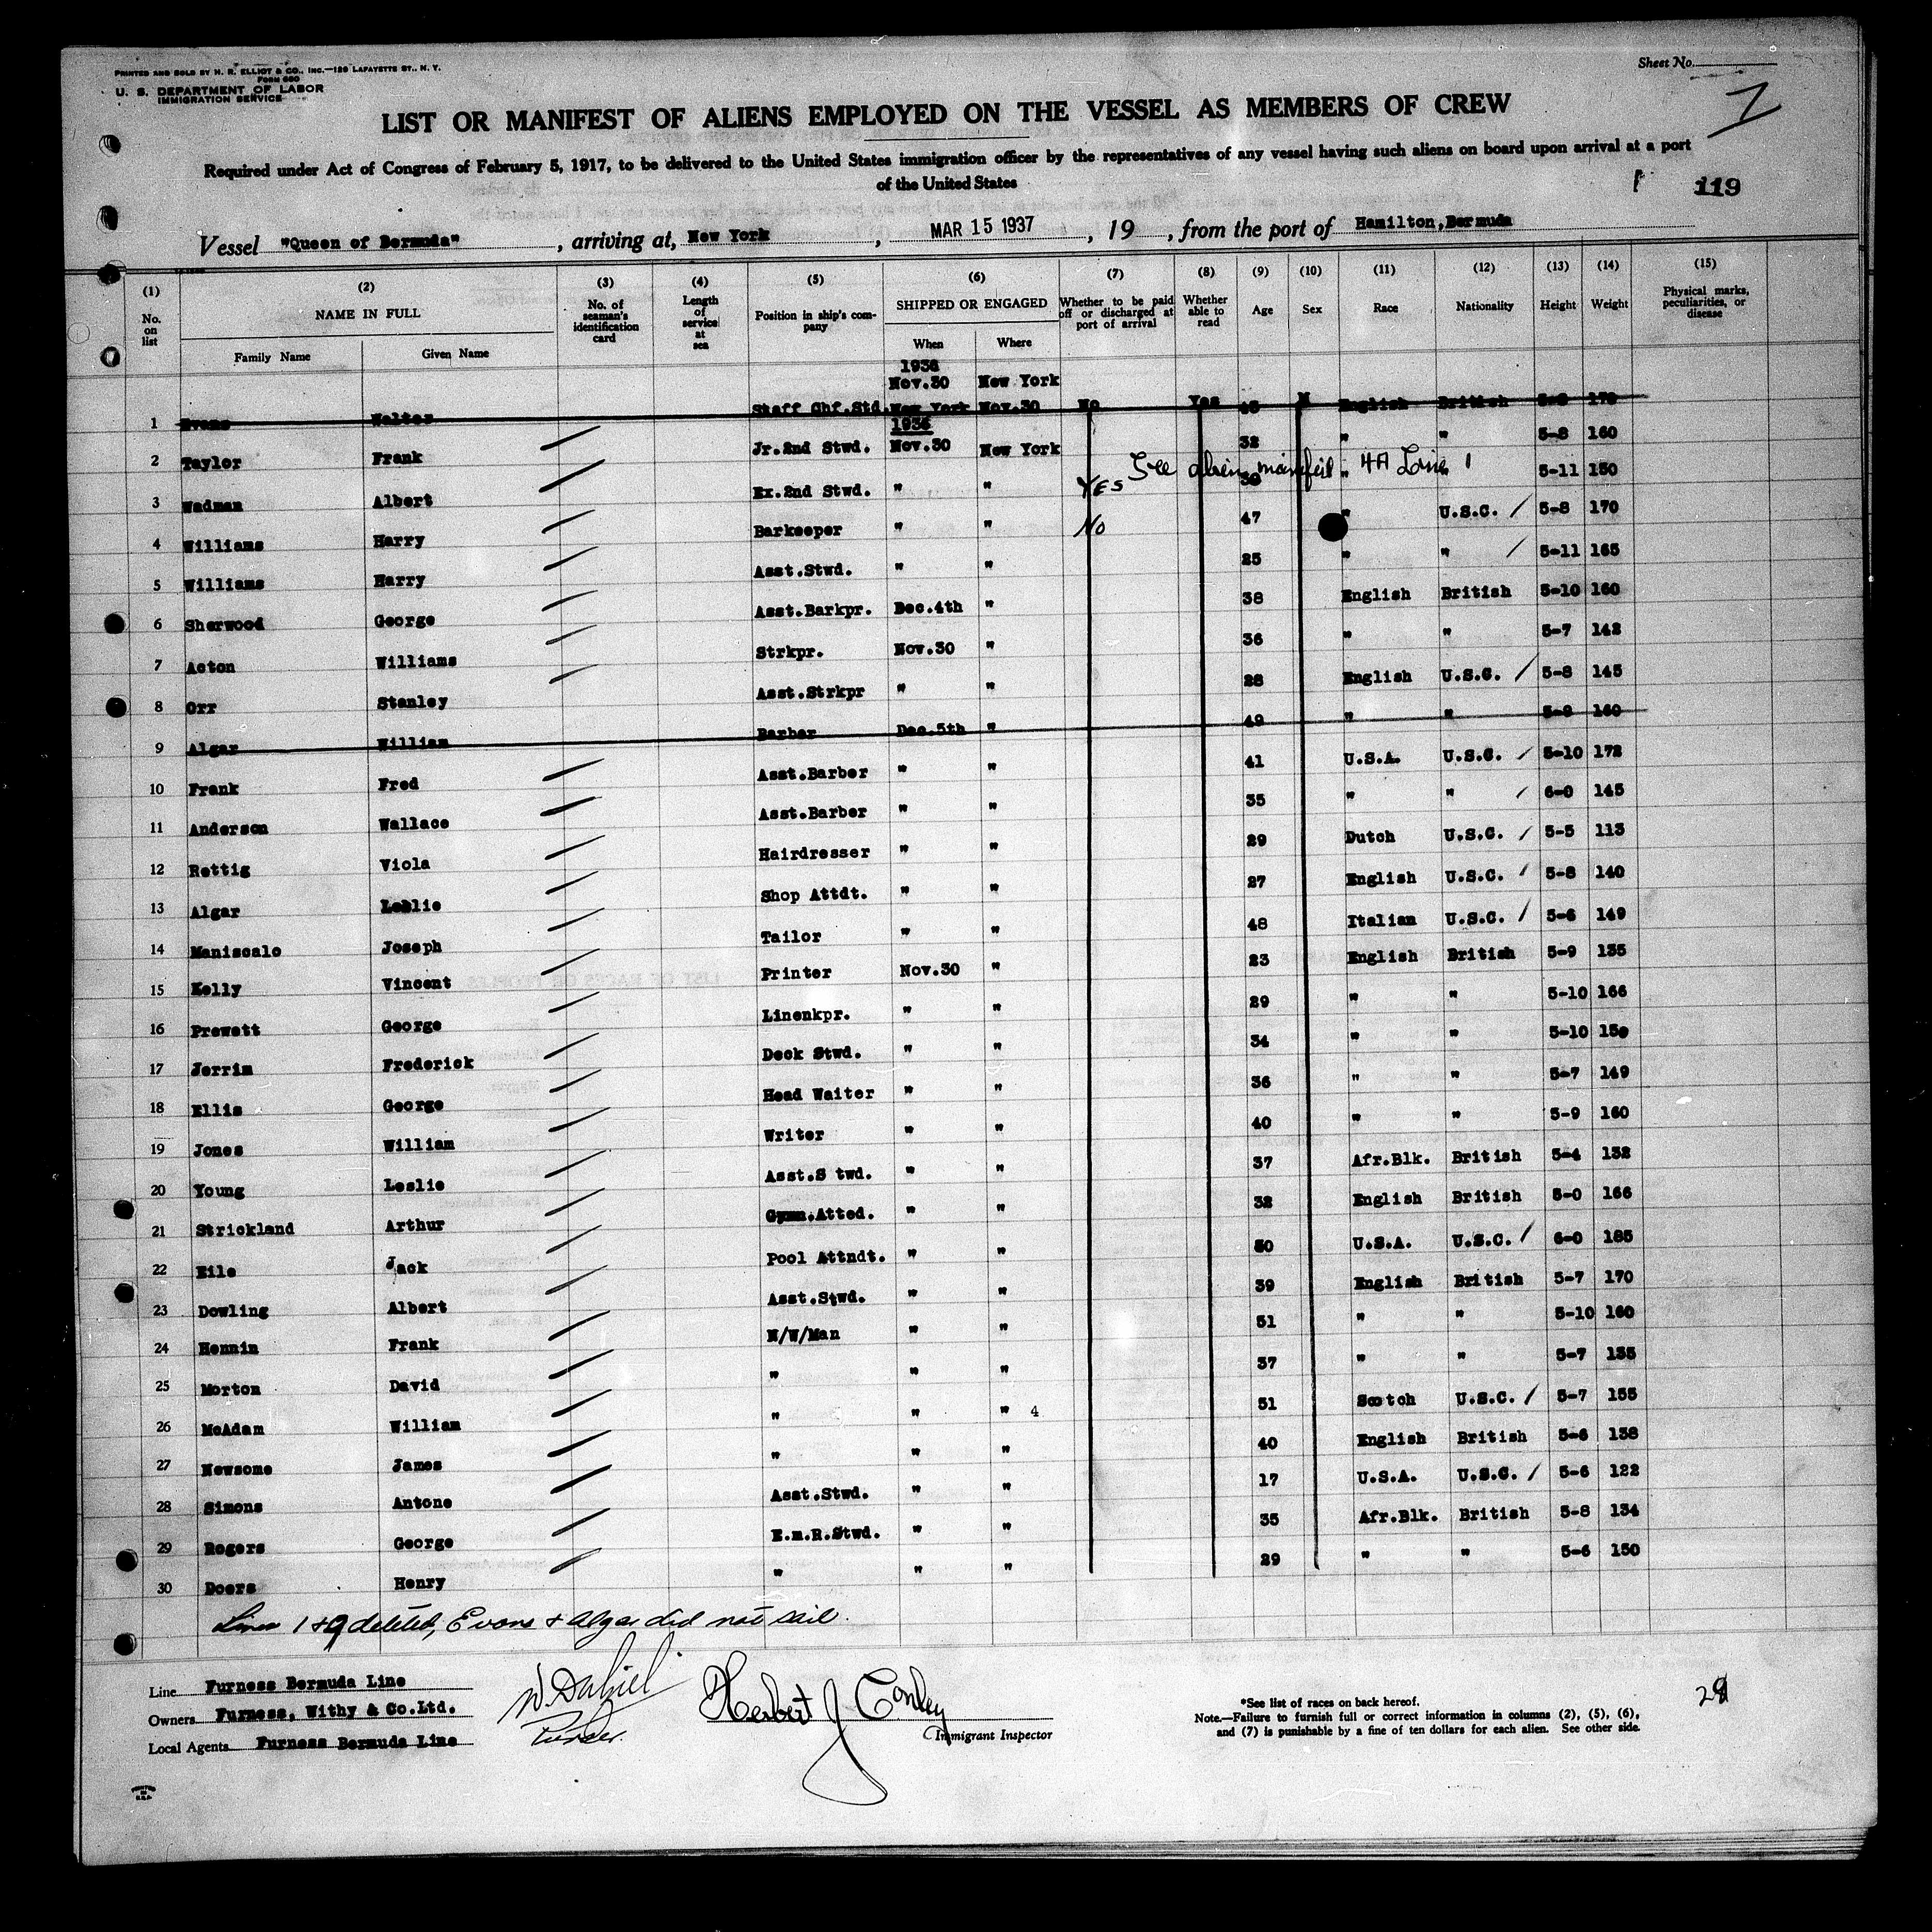 PRINTED AND SOLD BY H. R. ELLIOT & CO., INC.—129 LAFAYETTE ST., N. Y.
FORM 680
U. S. DEPARTMENT OF LABOR
IMMIGRATION SERVICE
Sheet No.
LIST OR MANIFEST OF ALIENS EMPLOYED ON THE VESSEL AS MEMBERS OF CREW
Required under Act of Congress of February 5, 1917, to be delivered to the United States immigration officer by the representatives of any vessel having such aliens on board upon arrival at a port
of the United States
119
Vessel "Queen of Bermuda", arriving at, New York, MAR 15 1937, 19, from the port of Hamilton, Bermuda
(1) No. on list (2) NAME IN FULL Family Name Given Name (3) No. of seaman's identification card (4) Length of service at sea (5) Position in ship's company (6) SHIPPED OR ENGAGED When Where (7) Whether to be paid off or discharged at port of arrival (8) Whether able to read (9) Age (10) Sex (11) Race (12) Nationality (13) Height (14) Weight (15) Physical marks, peculiarities, or disease
1936
Nov.30 New York
1 Evans Walter Staff Chf.Std. New York Nov.30 No Yes M English British 170
1936
2 Taylor Frank Jr.2nd Stwd. Nov.30 New York 32 " " 5-8 160
See alien manifest 4A Line 1
3 Wadman Albert Ex.2nd Stwd. " " YES 30 " " 5-11 150
4 Williams Harry Barkeeper " " No 47 " U.S.C. / 5-8 170
5 Williams Harry Asst.Stwd. " " 25 " " / 5-11 165
6 Sherwood George Asst.Barkpr. Dec.4th " 38 English British 5-10 160
7 Acton Williams Strkpr. Nov.30 " 36 " " 5-7 142
8 Orr Stanley Asst.Strkpr " " 28 English U.S.C. / 5-8 145
9 Algar William Barber Dec.5th " 49 " " 5-9 160
10 Frank Fred Asst.Barber " " 41 U.S.A. U.S.C. / 5-10 172
11 Anderson Wallace Asst.Barber " " 35 " " / 6-0 145
12 Rettig Viola Hairdresser " " 29 Dutch U.S.C. / 5-5 113
13 Algar Leslie Shop Attdt. " " 27 English U.S.C. / 5-8 140
14 Maniscalo Joseph Tailor " " 48 Italian U.S.C. / 5-6 149
15 Kelly Vincent Printer Nov.30 " 23 English British 5-9 135
16 Prewett George Linenkpr. " " 29 " " 5-10 166
17 Jerrim Frederick Deck Stwd. " " 34 " " 5-10 150
18 Ellis George Head Waiter " " 36 " " 5-7 149
19 Jones William Writer " " 40 " " 5-9 160
20 Young Leslie Asst.S twd. " " 37 Afr.Blk. British 5-4 132
21 Strickland Arthur Gymn.Atted. " " 32 English British 5-0 166
22 Eile Jack Pool Attndt. " " 50 U.S.A. U.S.C. / 6-0 185
23 Dowling Albert Asst.Stwd. " " 39 English British 5-7 170
24 Hennin Frank N/W/Man " " 51 " " 5-10 160
25 Morton David " " " 37 " " 5-7 135
26 McAdam William " " " 4 51 Scotch U.S.C. / 5-7 155
27 Newsome James " " " 40 English British 5-6 138
28 Simons Antone Asst.Stwd. " " 17 U.S.A. U.S.C. / 5-6 122
29 Rogers George E.m.R.Stwd. " " 35 Afr.Blk. British 5-8 134
30 Doers Henry " " " 29 " " 5-6 150
Lines 1 + 9 deleted, Evans + Algar did not sail.
Line Furness Bermuda Line
Owners Furness, Withy & Co.Ltd.
Local Agents Furness Bermuda Line
Purser.
Herbert J Conley
Immigrant Inspector
*See list of races on back hereof.
Note.—Failure to furnish full or correct information in columns (2), (5), (6),
and (7) is punishable by a fine of ten dollars for each alien. See other side.
PRINTED IN U.S.A.